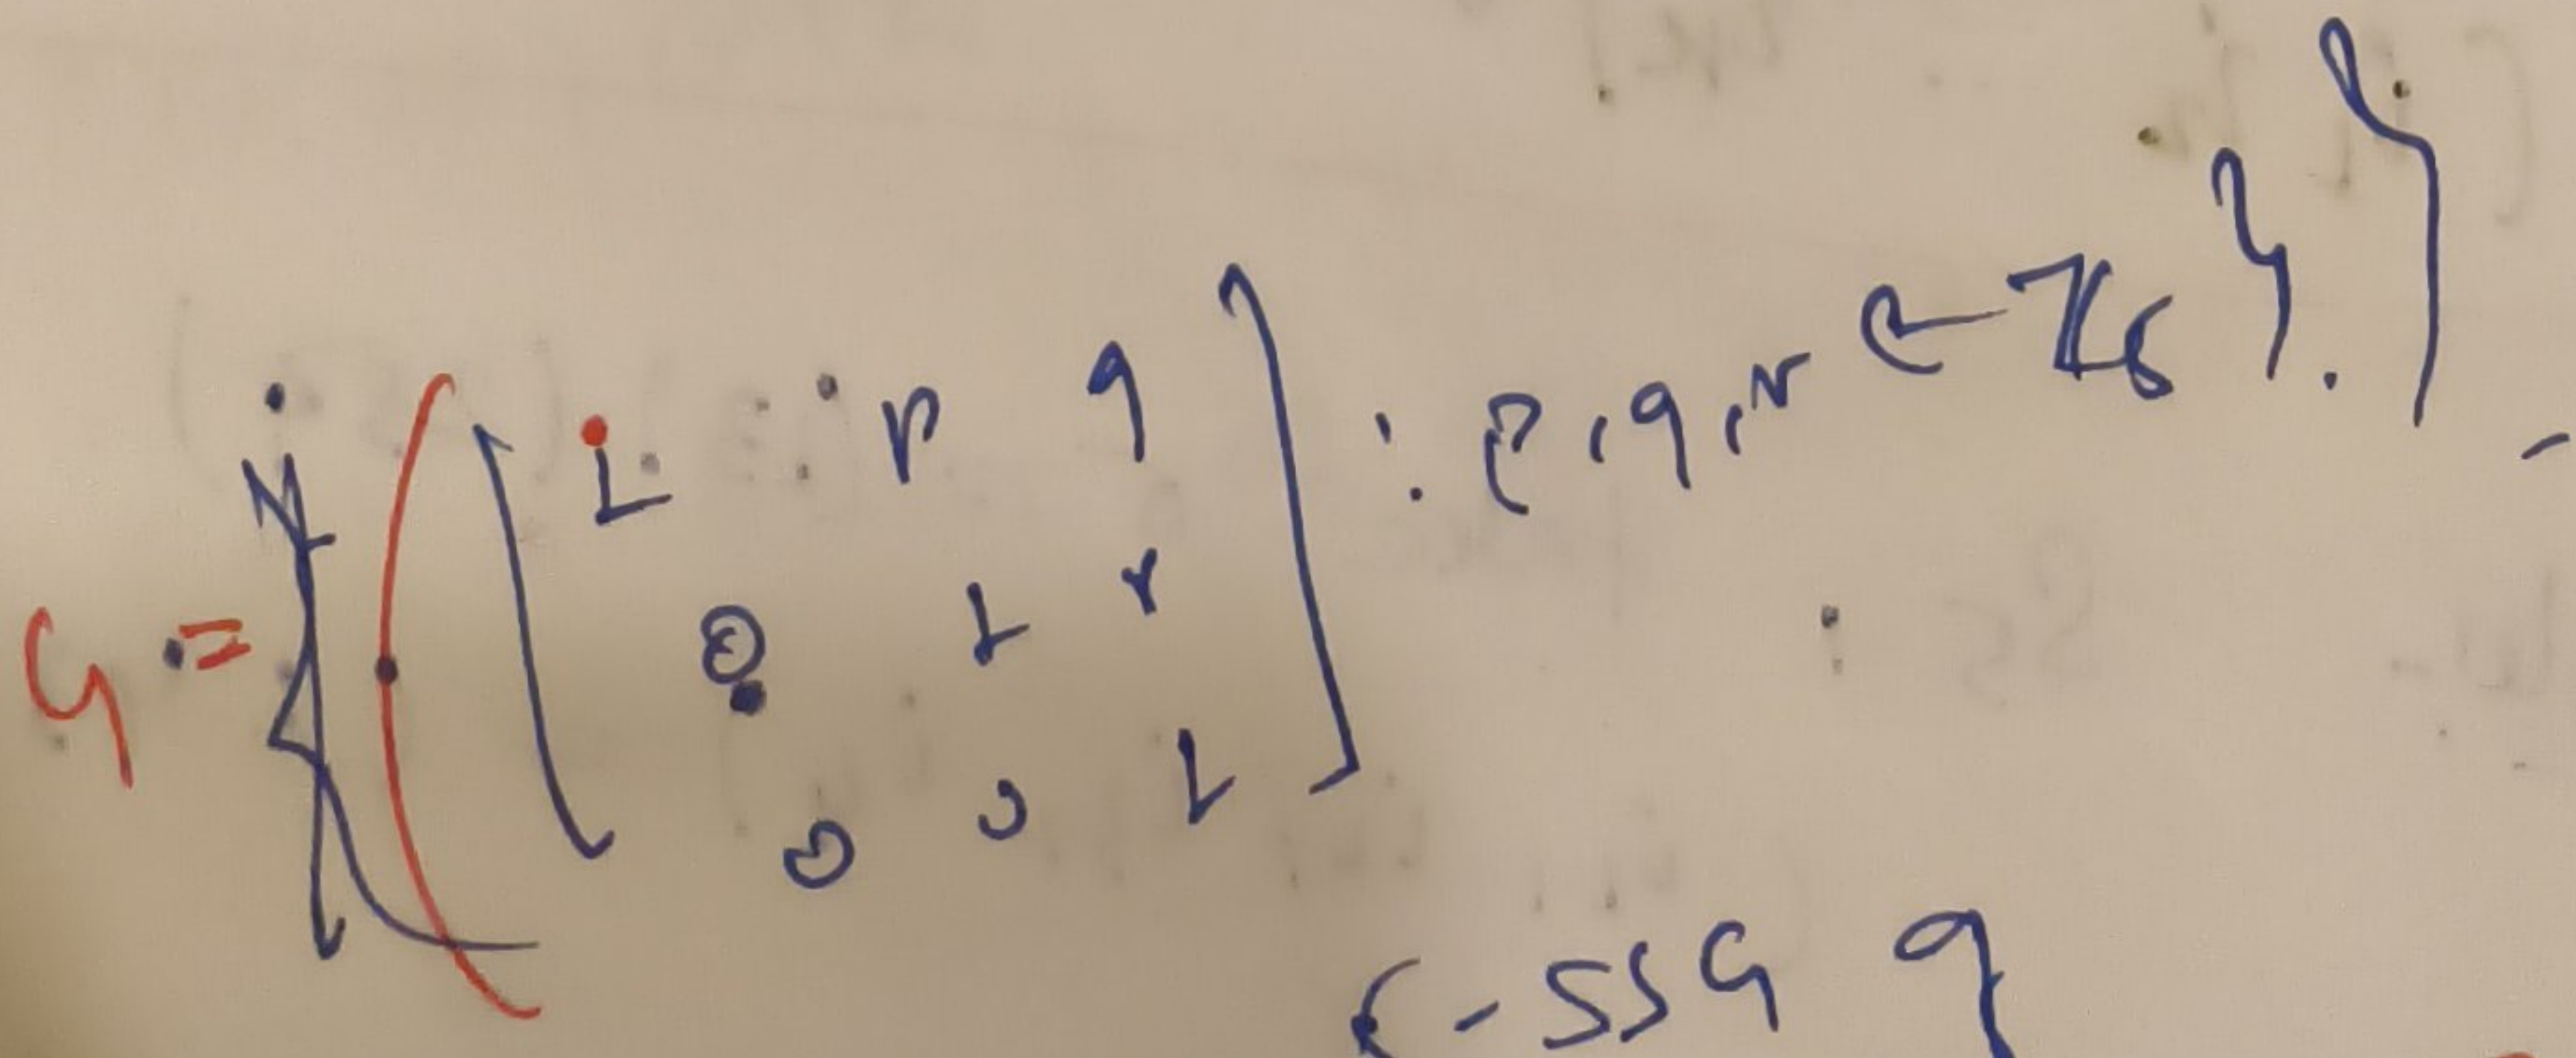 G = { [ 1 p q
0 1 r
0 0 1 ] : p, q, r ∈ Z6 }. }
- SSG